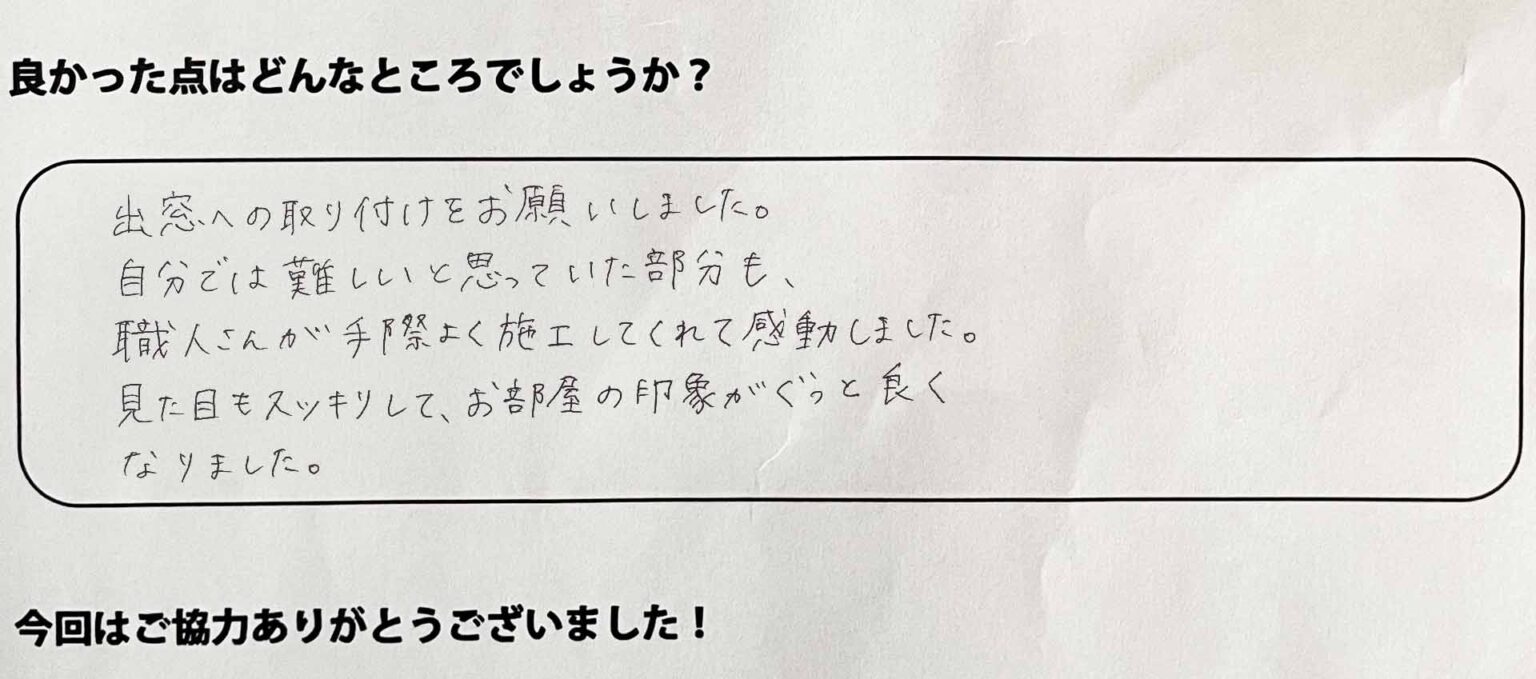 良かった点はどんなところでしょうか？
出窓への取り付けをお願いしました。
自分では難しいと思っていた部分も、
職人さんが手際よく施工してくれて感動しました。
見た目もスッキリして、お部屋の印象がぐっと良く
なりました。
今回はご協力ありがとうございました！